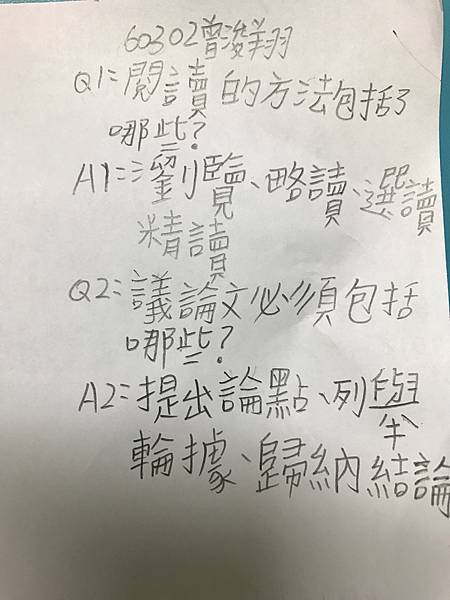 60302曾浚翔
Q1:閱讀的方法包括了
哪些?
A1:瀏覽、略讀、選讀
精讀
Q2:議論文必須包括
哪些?
A2:提出論點、列舉
輪據、歸納結論